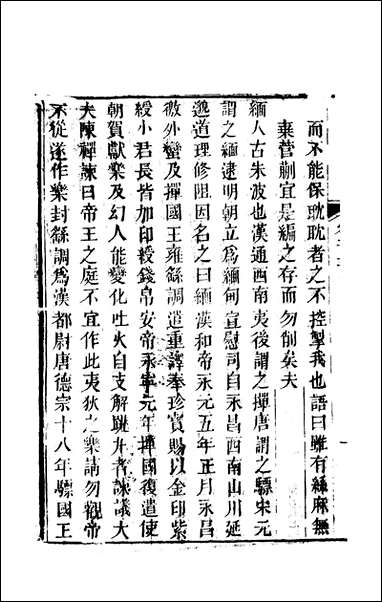 而不能保眈眈者之不控掣我也語曰雖有絲麻無
棄菅蒯宜是編之存而勿削矣夫
緬人古朱波也漢通西南夷後謂之撣唐謂之驃宋元
謂之緬遠明朝立為緬甸宣慰司自永昌西南山川延
邈道理修阻因名之曰緬漢和帝永元五年正月永昌
徼外蠻及撣國王雍繇調遣重譯奉珍寳賜以金印紫
綬小君長皆加印綬錢帛安帝永寧元年撣國復遣使
朝賀獻樂及幻人能變化吐火自支解跳丸者諫議大
夫陳禪諫曰帝王之庭不宜作此夷狄之樂請勿觀帝
不從遂作樂封繇調為漢都尉唐德宗十八年驃國王